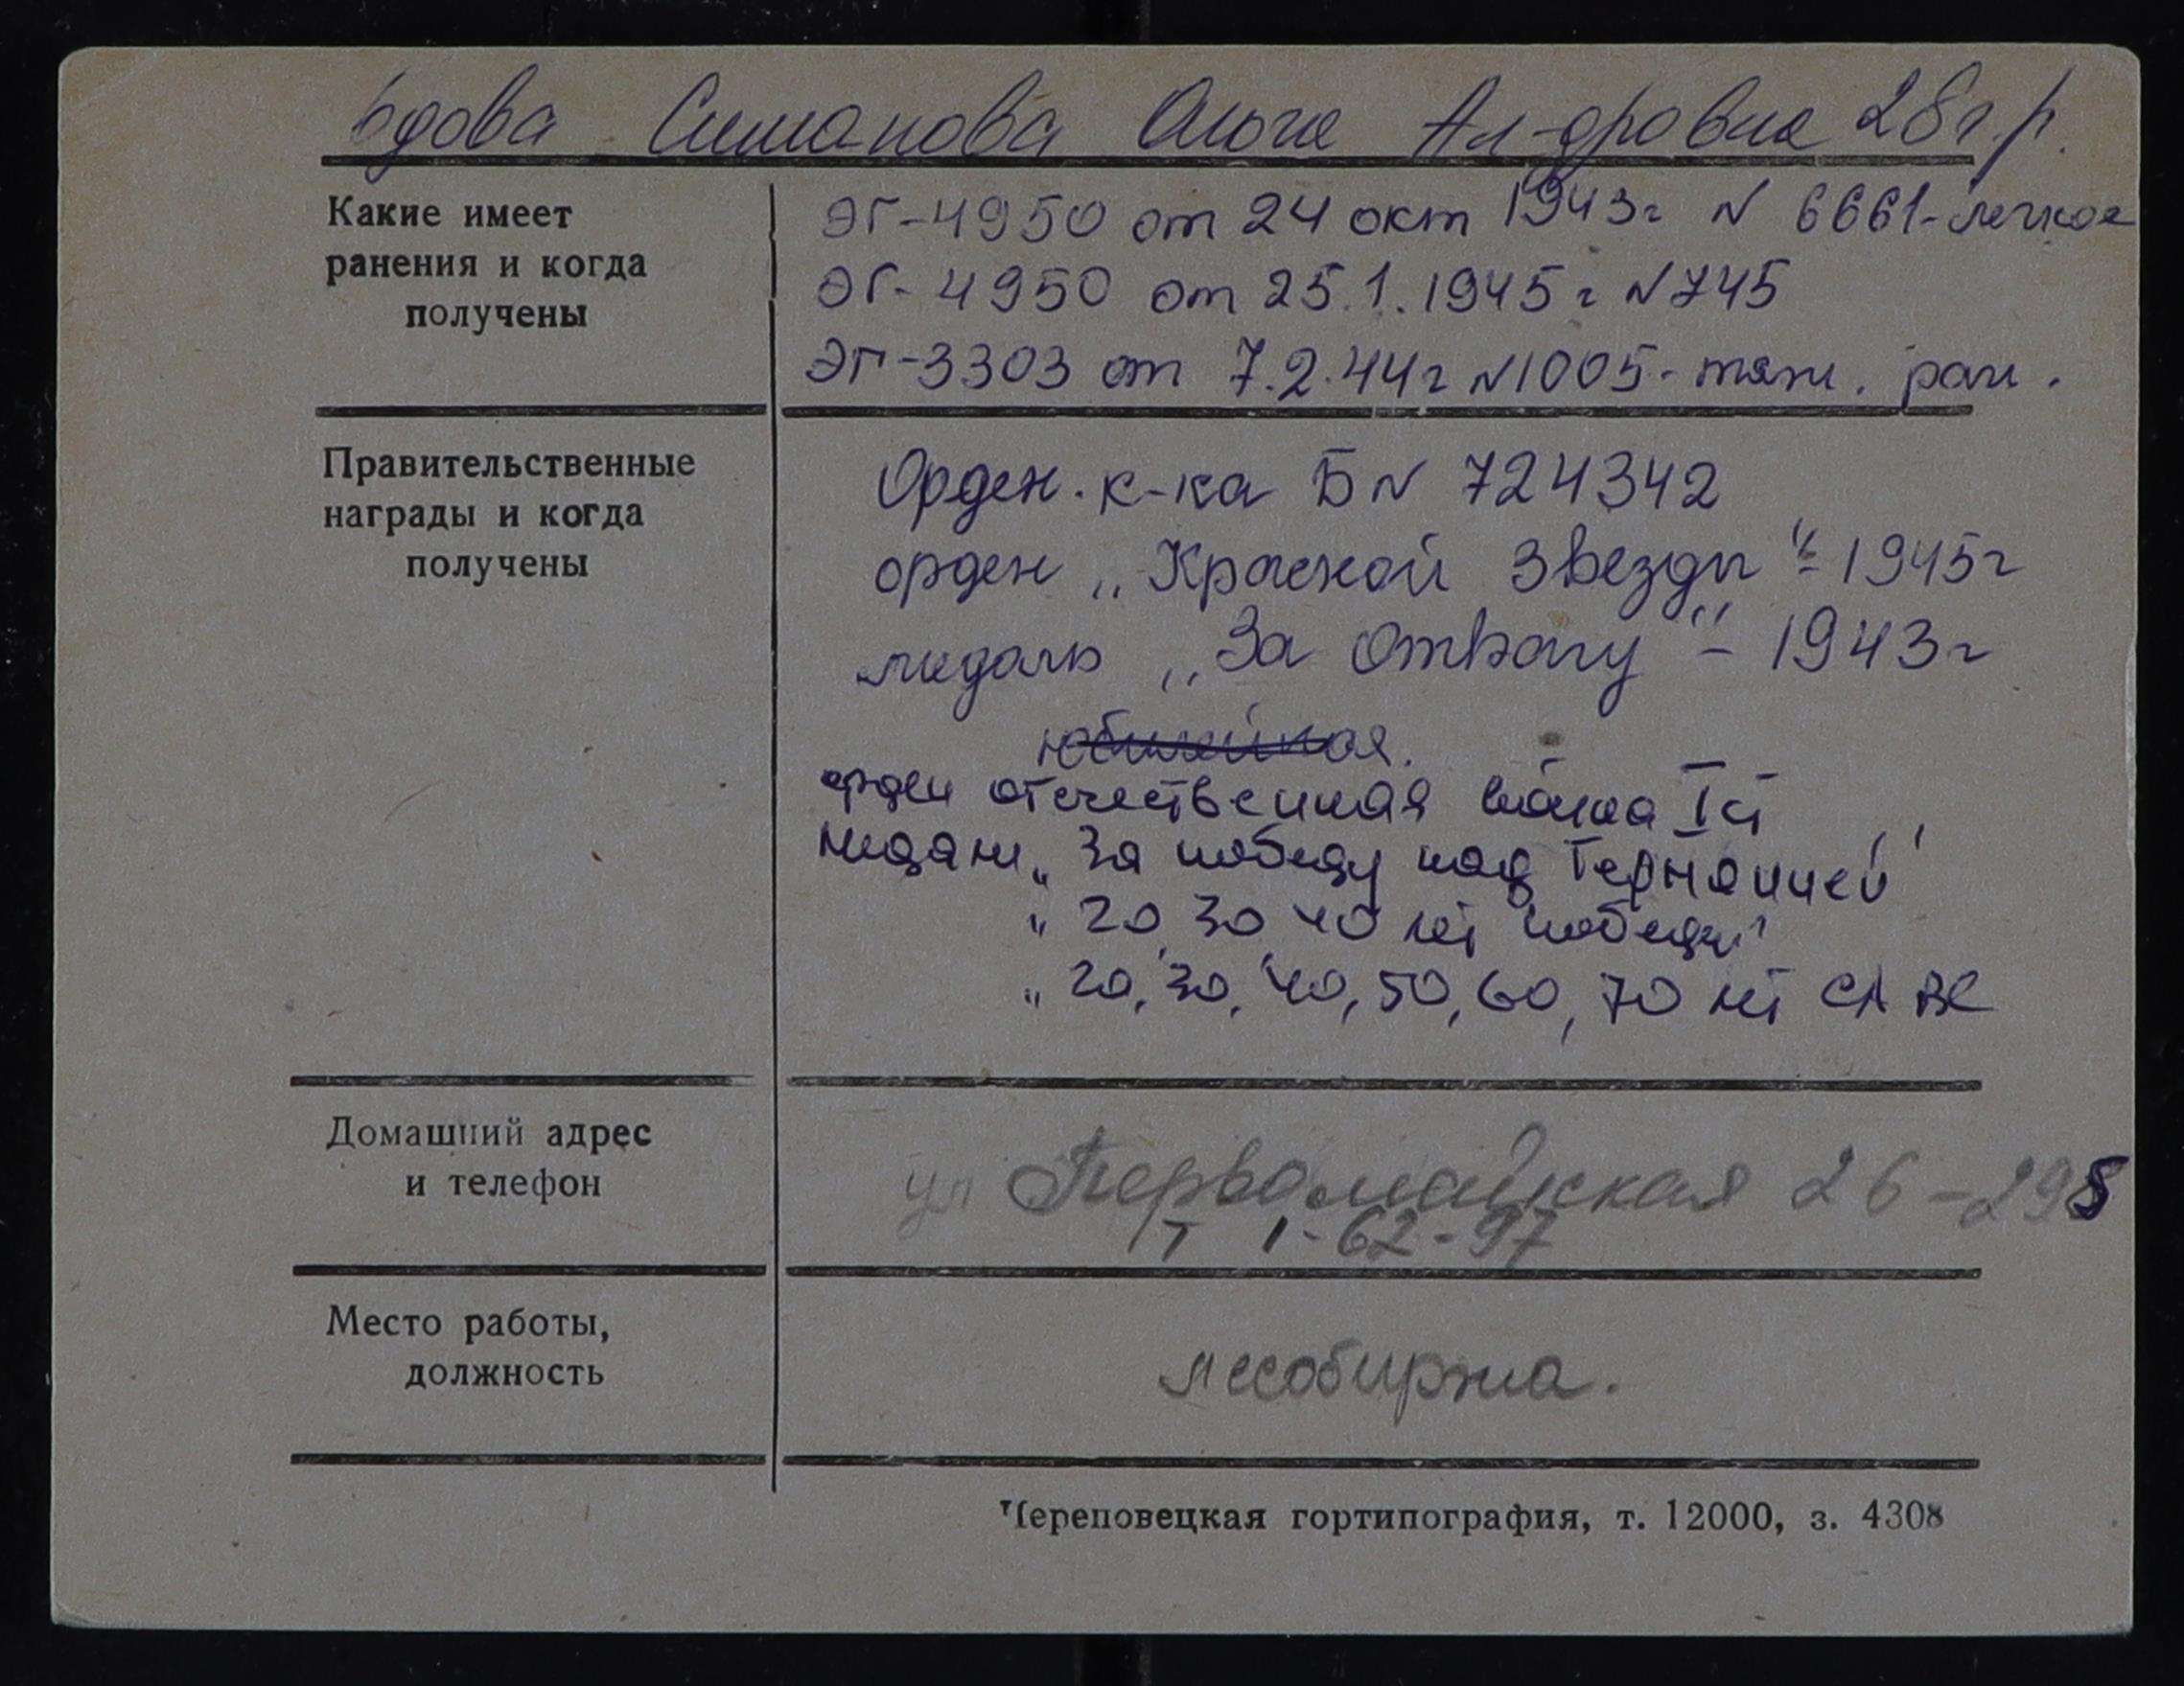 вдова Симанова Ольга Ал-дровна 28 г.р.
Какие имеет
ранения и когда
получены
ЭГ-4950 от 24 окт 1943г N 6661-легкое
ЭГ-4950 от 25.1.1945г N745
ЭГ-3303 от 7.2.44г N1005-тяж. ран.
Правительственные
награды и когда
получены
Орден. к-ка Б N 724342
орден „Красной Звезды"-1945г
медаль „За Отвагу" - 1943г
юбилейная.
орден отечественная война I ст
медали „За победу над Германией"
„20, 30, 40 лет победы"
„20, 30, 40, 50, 60, 70 лет СА ВС
Домашний адрес
и телефон
ул Первомайская 26-298
т 1-62-97
Место работы,
должность
лесобиржа.
Череповецкая гортипография, т. 12000, з. 4308